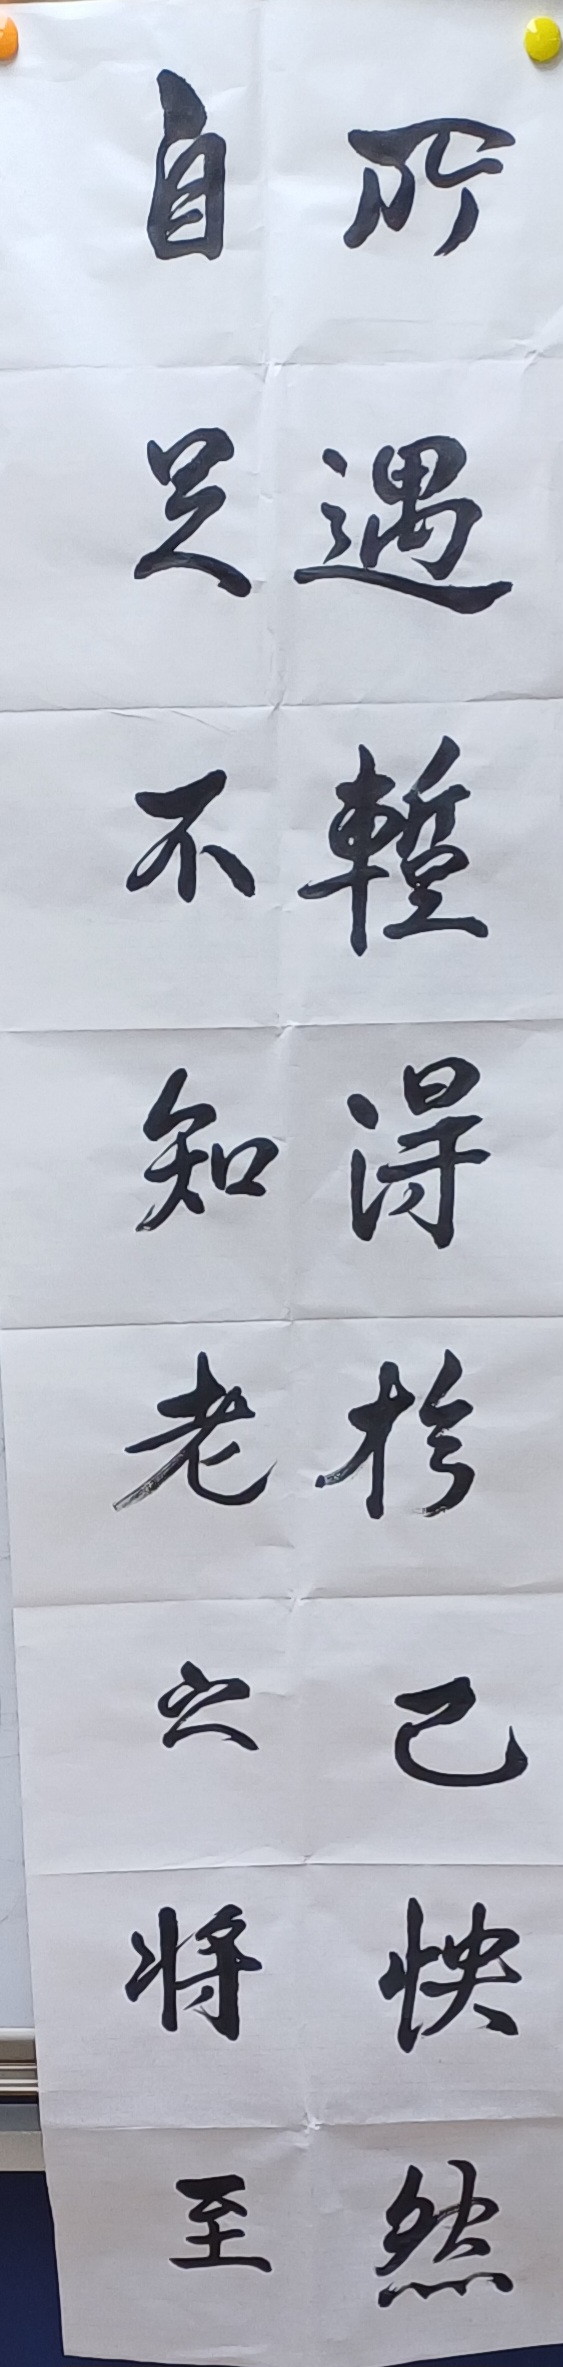 所遇蹔得於己怏然
自足不知老之将至